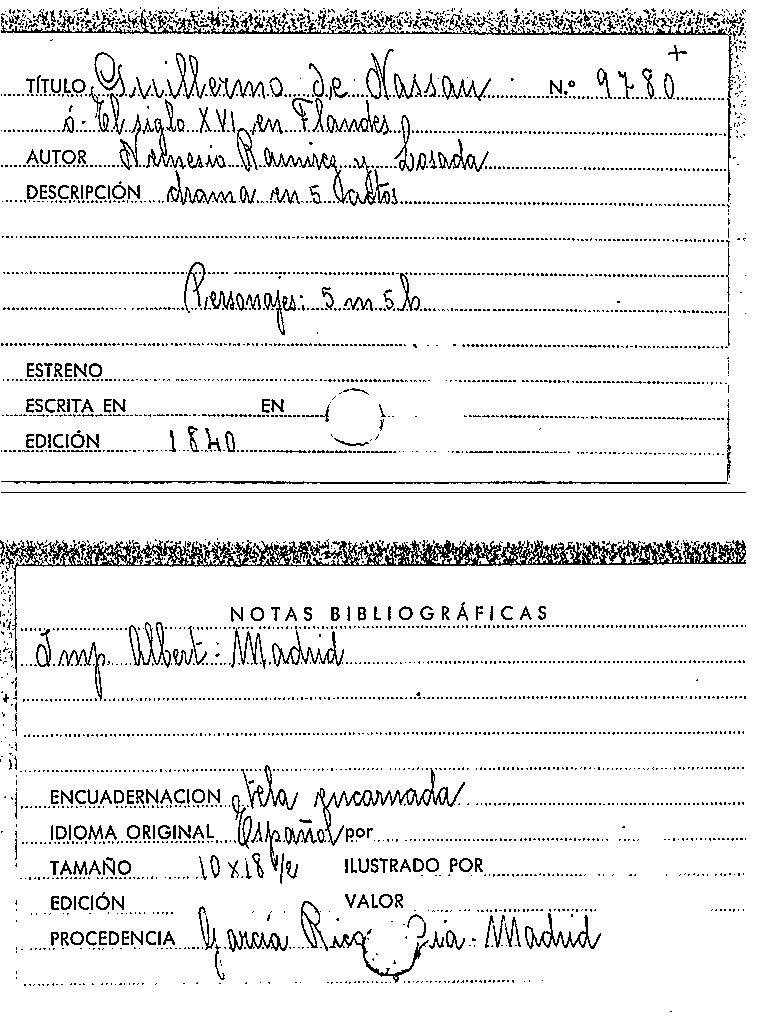 TÍTULO Guillermo de Nassau N.º 9780 +
ó El siglo XVI en Flandes
AUTOR Nemesio Ramirez y Losada
DESCRIPCIÓN drama en 5 actos
Personajes: 5 m 5 h
ESTRENO
ESCRITA EN EN
EDICIÓN 1840
NOTAS BIBLIOGRÁFICAS
Imp. Albert: Madrid
ENCUADERNACION tela encarnada
IDIOMA ORIGINAL Español por
TAMAÑO 10 x 18 1/2 ILUSTRADO POR
EDICIÓN VALOR
PROCEDENCIA García Rico Cia. Madrid